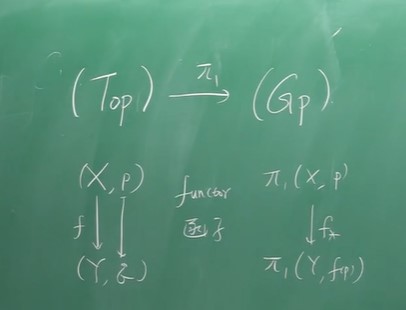 (Top) π₁→ (Gp)
(X, p) functor π₁(X, p)
f↓ ↓ 函子 ↓f*
(Y, q) π₁(Y, f(p))